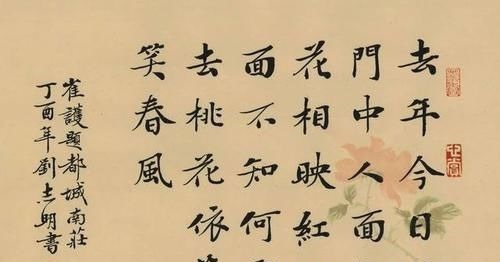 去年今日
門中人面
花相映紅
面不知何
去桃花依
笑春風
崔護題都城南莊
丁酉年劉志明書